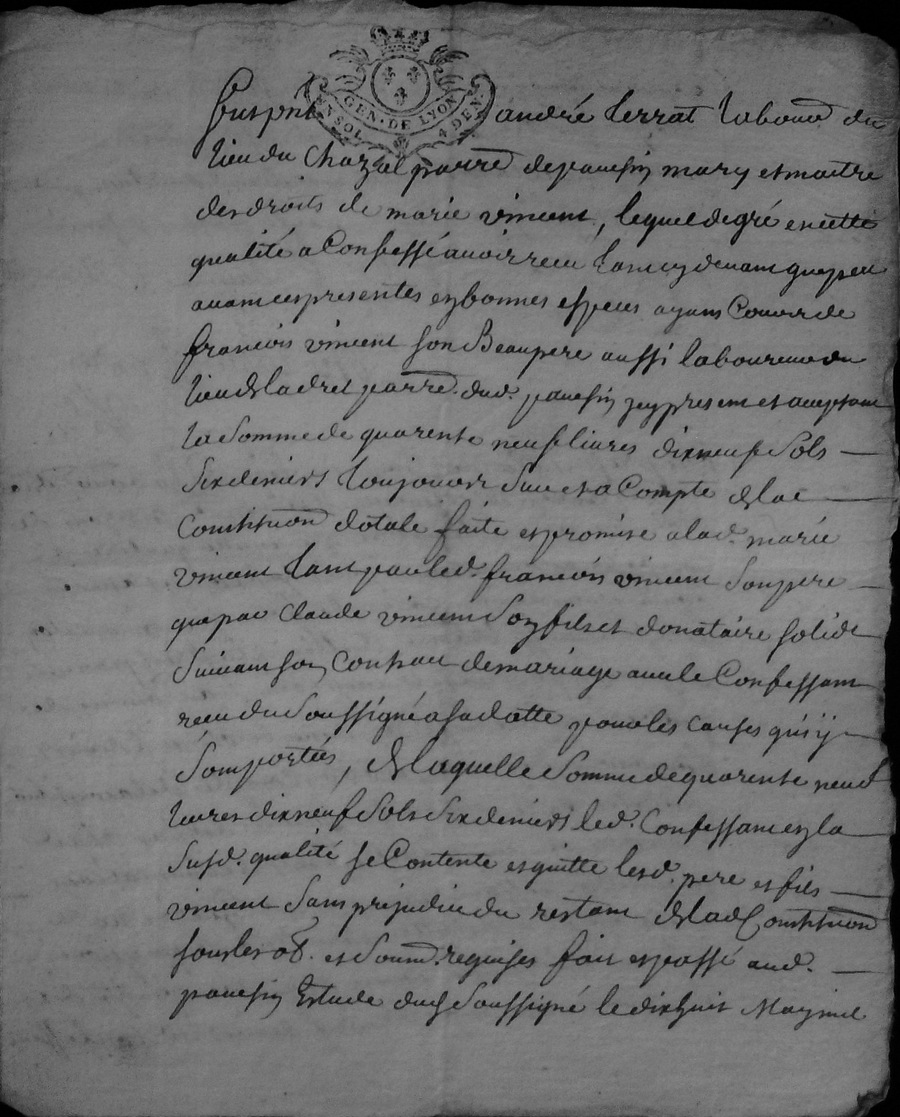 GEN · DE LYON
EN SOL 4 DEN
fut pnt andré terrat labour du
lieu du Chazal parre de pauesin mary et maitre
des droits de marie vincent, lequel de gré en cette
qualité a Confessé auoir receu tam cy deuant que peu
auam ces presentes en bonnes espeus ayans Cour de
francois vincent son Beaupere aussi laboureur du
lieu de ladret parre. dud. pauesin icy present et acceptant
la somme de quarente neuf liures dixneuf sols
six deniers toujours sur et a Compte de la
Constitution dotale faite et promise a lad. marie
vincent tant par led. francois vincent son pere
que par Claude vincent son fils et donataire solide
suiuam son Contract de mariage auec le Confessam
receu du soussigné a sa datte pour les causes qui y
sont portées, de laquelle somme de quarente neuf
liures dixneuf sols six deniers led. Confessam en la
susd. qualité se Contente et quitte lesd. pere et fils
vincent sans prejudice du restam de lad Constitution
sous les ob. et soum. requises fait et passé aud.
pauesin Estude du soussigné le dixhuit May mil